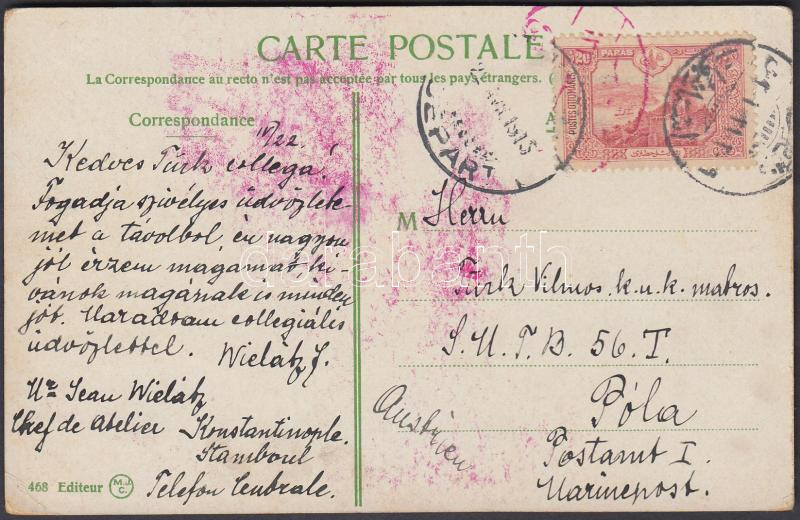 CARTE POSTALE
La Correspondance au recto n'est pas acceptée par tous les pays étrangers.
Correspondance
Kedves Türk collega!
Fogadja szivélyes üdvözlete-
met a távolbol, én nagyon
jól érzem magamat, ki-
vánok magának is minden
jót. Maradtam collegiális
üdvözlettel. Wielátz J.
Mr Jean Wielátz
Chef de Atelier Konstantinople.
Stamboul
Telefon Centrale.
468 Editeur M.J.C.
PARAS
20
POSTES OTTOMANES
DEPART
1915
M Herrn
Türk Vilmos k.u.k. matros.
S.M.T.B. 56.T.
Póla
Postamt I
Marinepost.
Austrien
darabanth